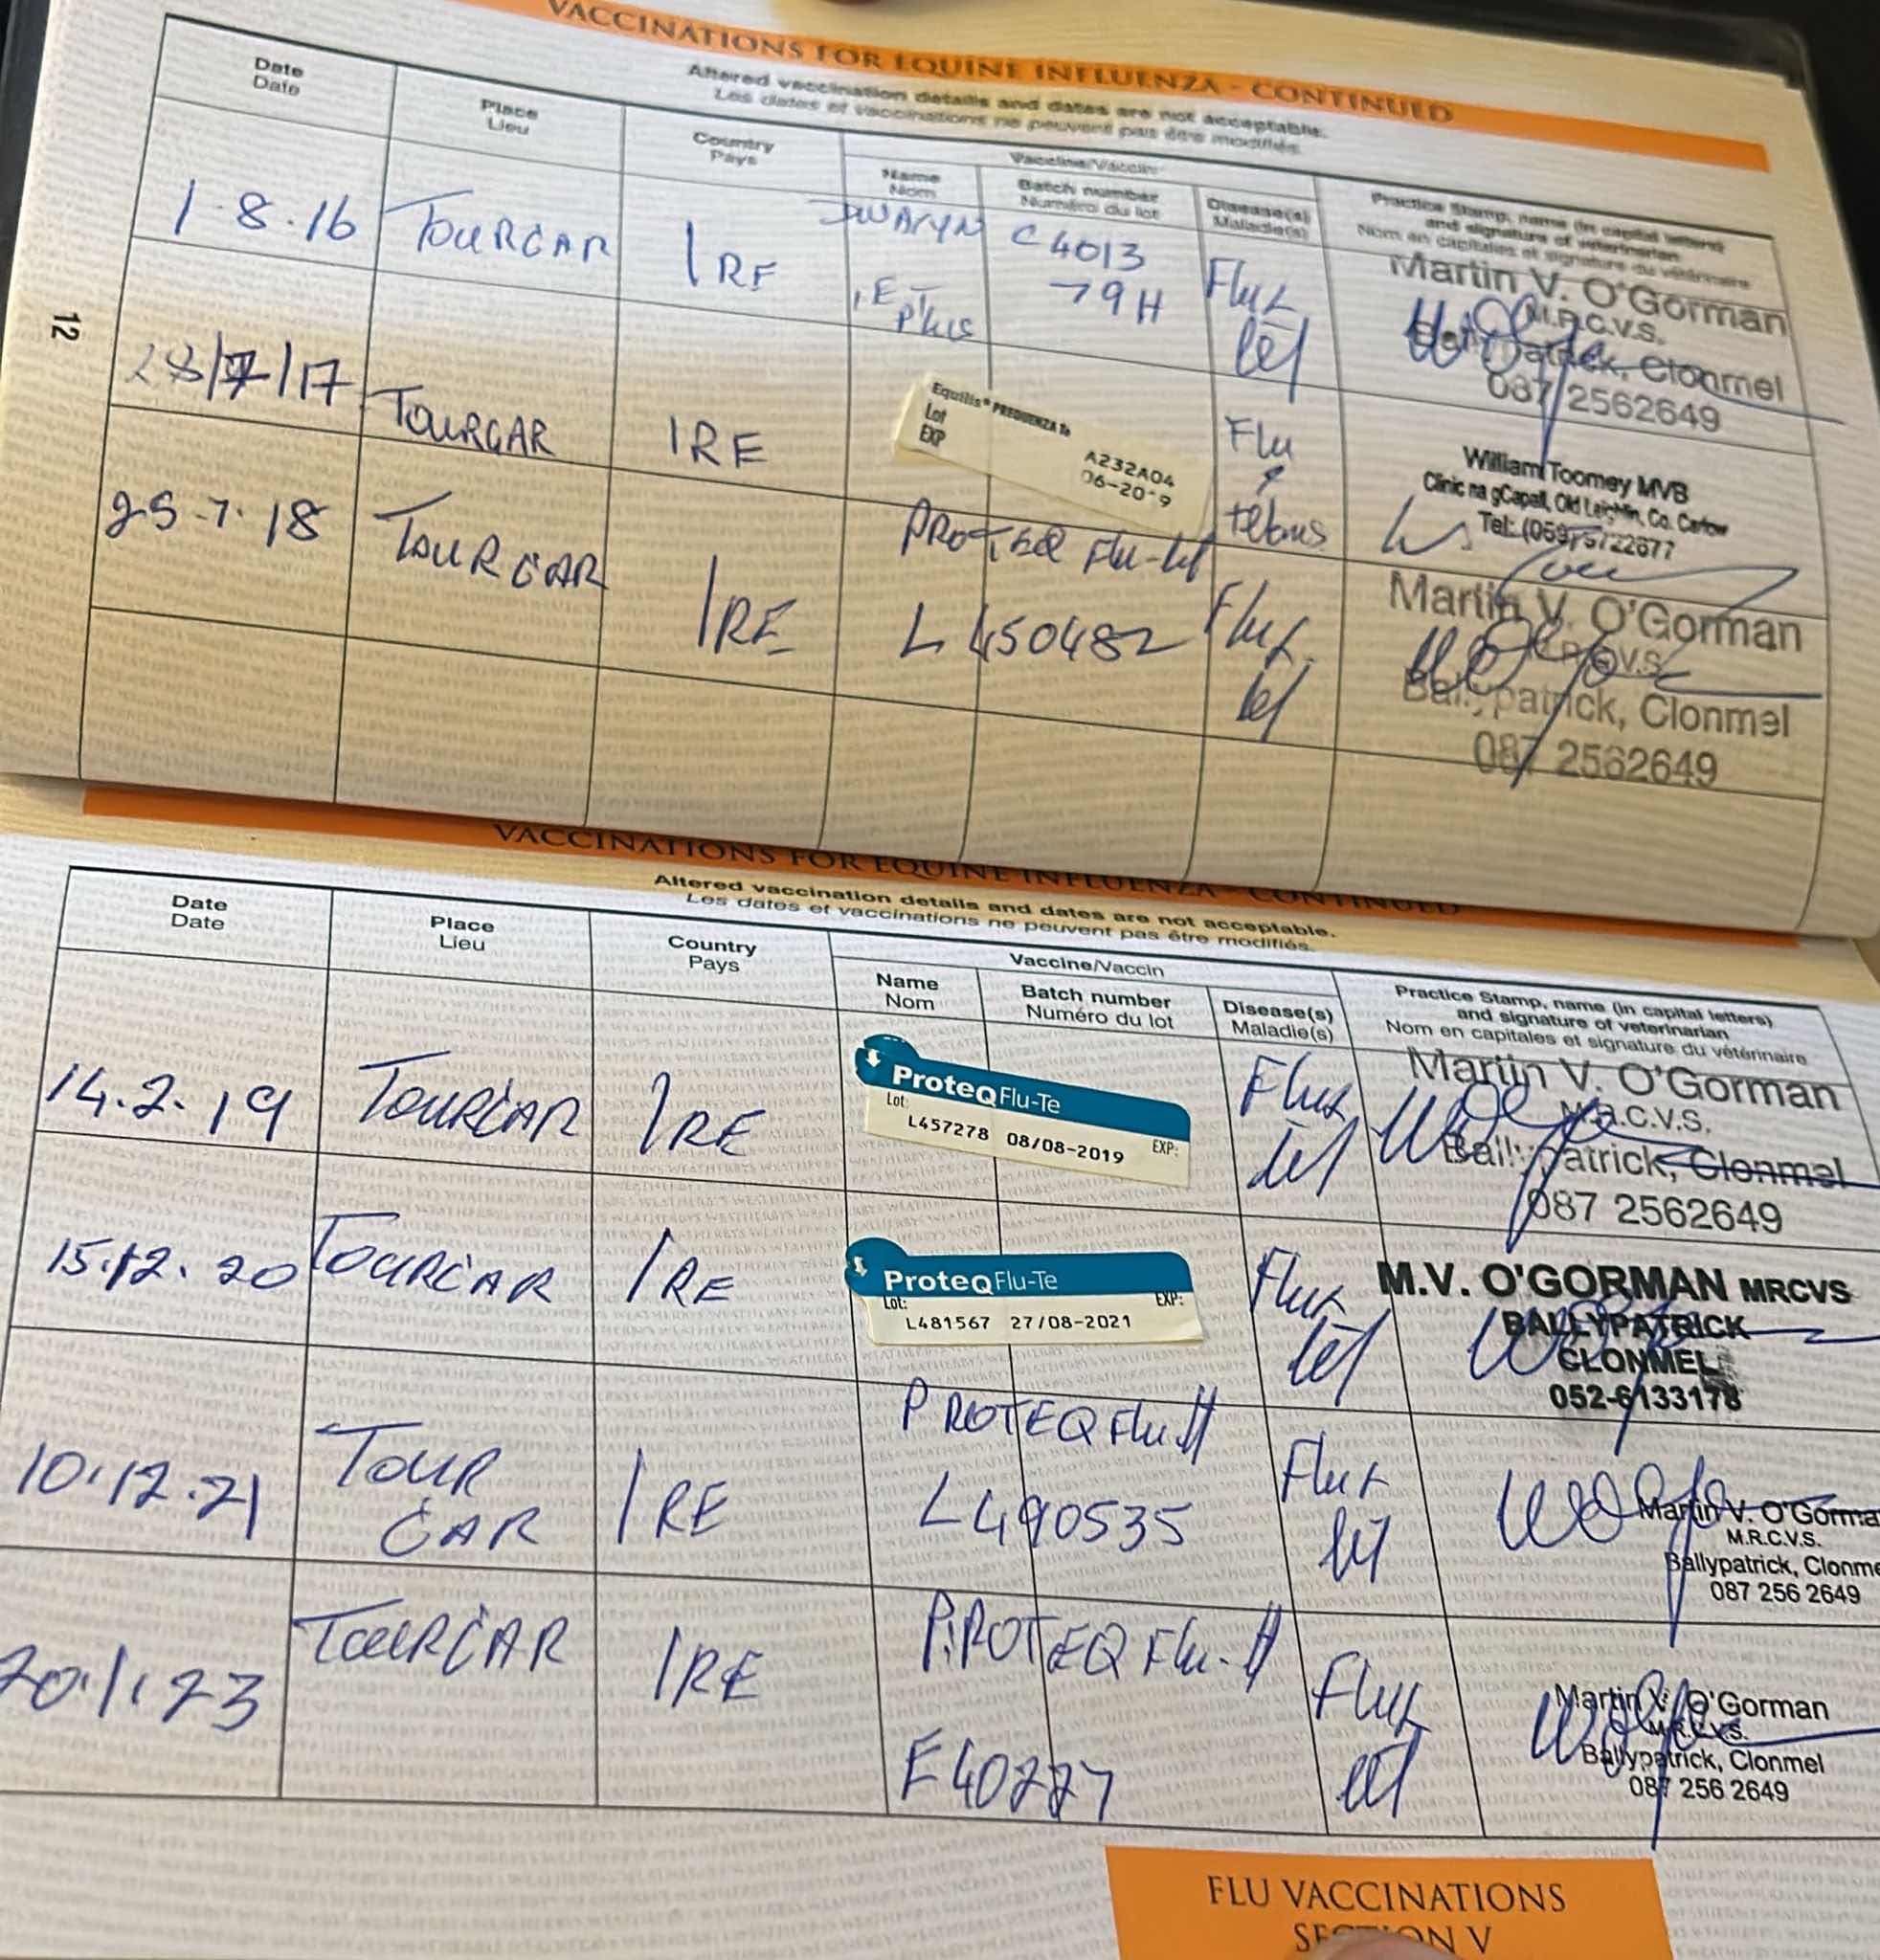 VACCINATIONS FOR EQUINE INFLUENZA - CONTINUED
Altered vaccination details and dates are not acceptable.
Les dates et vaccinations ne peuvent pas être modifiés.
Date
Date
Place
Lieu
Country
Pays
Vaccine/Vaccin
Name
Nom
Batch number
Numéro du lot
Disease(s)
Maladie(s)
Practice Stamp, name (in capital letters)
and signature of veterinarian
Nom en capitales et signature du vétérinaire
1.8.16
TOURCAR
IRE
IE-
Plus
C4013
79H
Flu &
tet
Martin V. O'Gorman
M.R.C.V.S.
Ballypatrick, Clonmel
087 2562649
28/7/17
TOURCAR
IRE
Equilis® PREQUENZA Te
Lot
EXP
A232A04
06-2019
Flu
&
William Toomey MVB
Clinic na gCapall, Old Leighlin, Co. Carlow
Tel: (059)
TOURCAR
IRE
PROTEQ Flu-tet
L450482
Flu &
tet
Martin V. O'Gorman
M.R.C.V.S.
Ballypatrick, Clonmel
087 2562649
12
VACCINATIONS FOR EQUINE INFLUENZA - CONTINUED
Altered vaccination details and dates are not acceptable.
Les dates et vaccinations ne peuvent pas être modifiés.
Date
Date
Place
Lieu
Country
Pays
Vaccine/Vaccin
Name
Nom
Batch number
Numéro du lot
Disease(s)
Maladie(s)
Practice Stamp, name (in capital letters)
and signature of veterinarian
Nom en capitales et signature du vétérinaire
14.2.19
TOURCAR
IRE
ProteqFlu-Te
Lot: EXP:
L457278 08/08-2019
Flu &
tet
Martin V. O'Gorman
M.R.C.V.S.
Ballypatrick, Clonmel
087 2562649
15.12.20
TOURCAR
IRE
ProteqFlu-Te
Lot: EXP:
L481567 27/08-2021
Flu &
tet
M.V. O'GORMAN MRCVS
BALLYPATRICK
CLONMEL
052-6133178
10.12.21
TOUR
CAR
IRE
PROTEQ Flu tt
L490535
Flu &
tet
Martin V. O'Gorma
M.R.C.V.S.
Ballypatrick, Clonme
087 256 2649
20.1.23
TOURCAR
IRE
PROTEQ Flu-tt
Flu &
tet
Martin V. O'Gorman
M.R.C.V.S.
Ballypatrick, Clonmel
087 256 2649
FLU VACCINATIONS
SECTION V